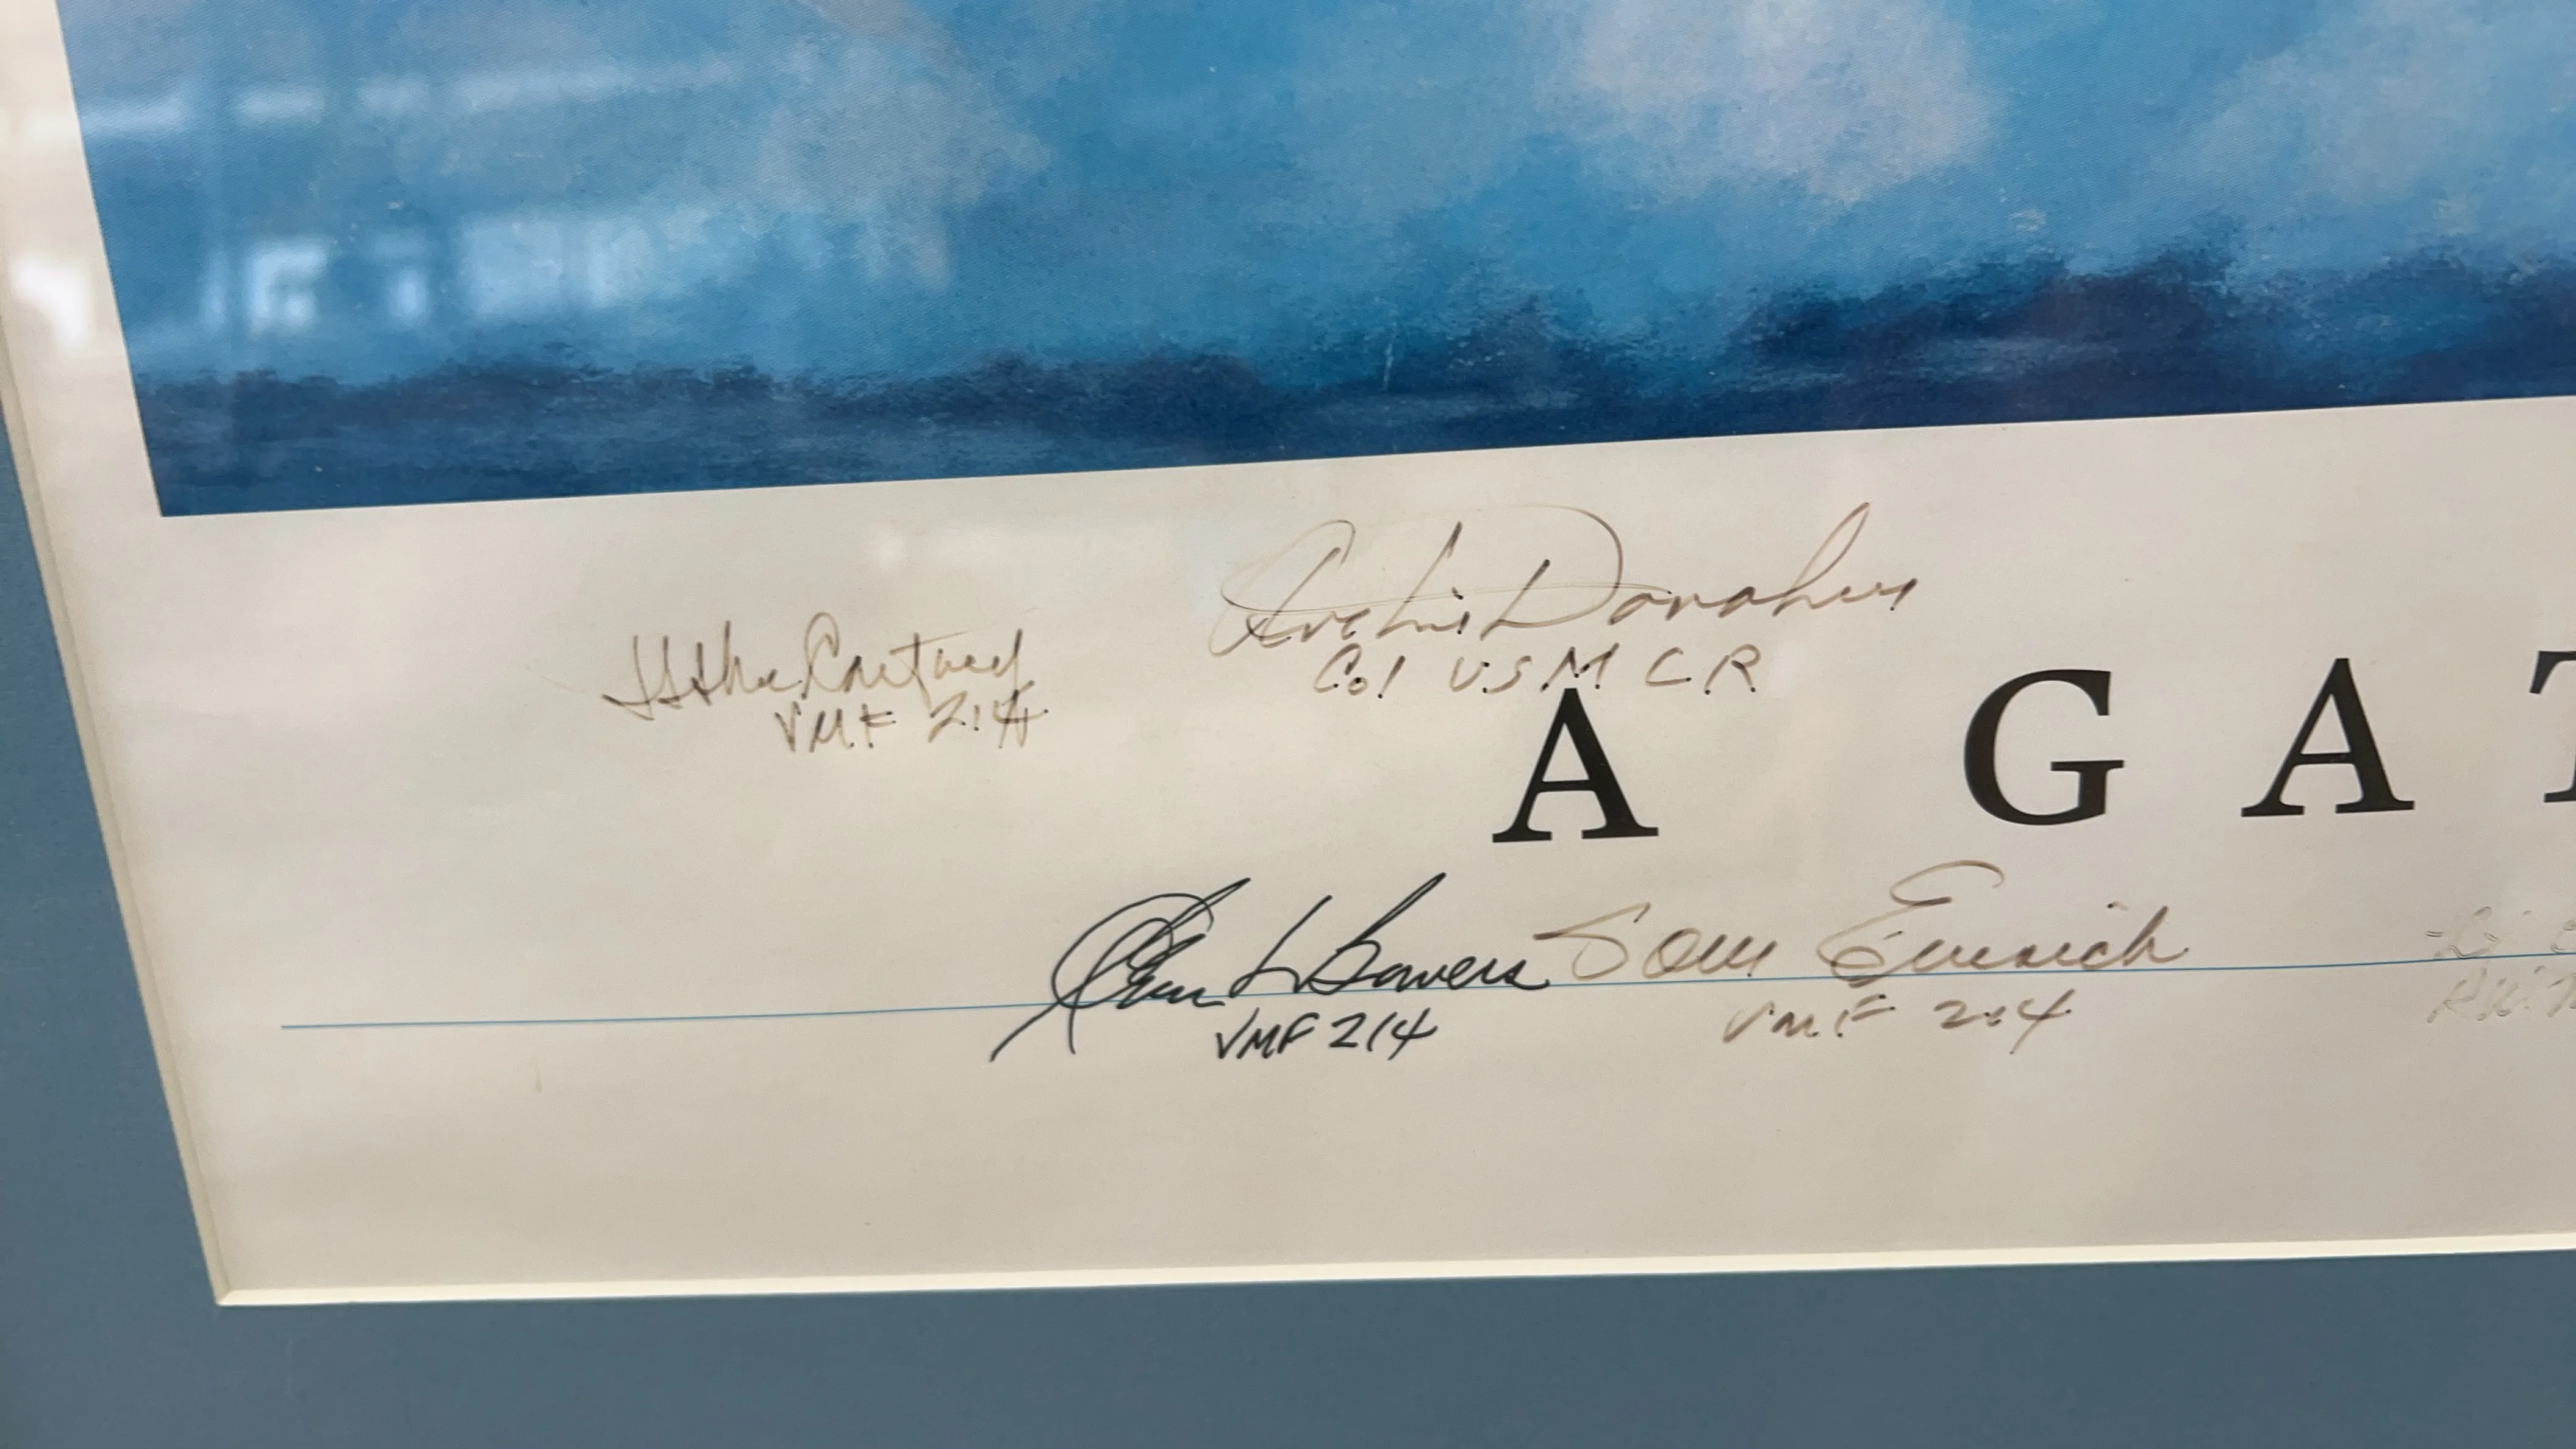 Archie Donahue
Col USMCR
VMF 214
A GAT
Glenn L Bowers
VMF 214
Tom Emrich
VMF 214